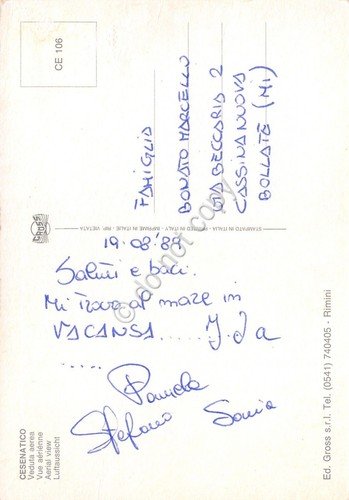 CE 106
FAMIGLIA
BONATO MARCELLO
VIA BECCARIA 2
CASSINA NUOVA
BOLLATE (MI)
STAMPATO IN ITALIA - PRINTED IN ITALY - IMPRIME EN ITALIE - RIP. VIETATA
GROSS
19.08.'89
Saluti e baci.
Mi trovo al mare in
VACANSA.....
.....
Pamela
Stefano Sonia
CESENATICO
Veduta aerea
Vue aérienne
Aerial view
Luftaussicht
Ed. Gross s.r.l. Tel. (0541) 740405 - Rimini
do not copy